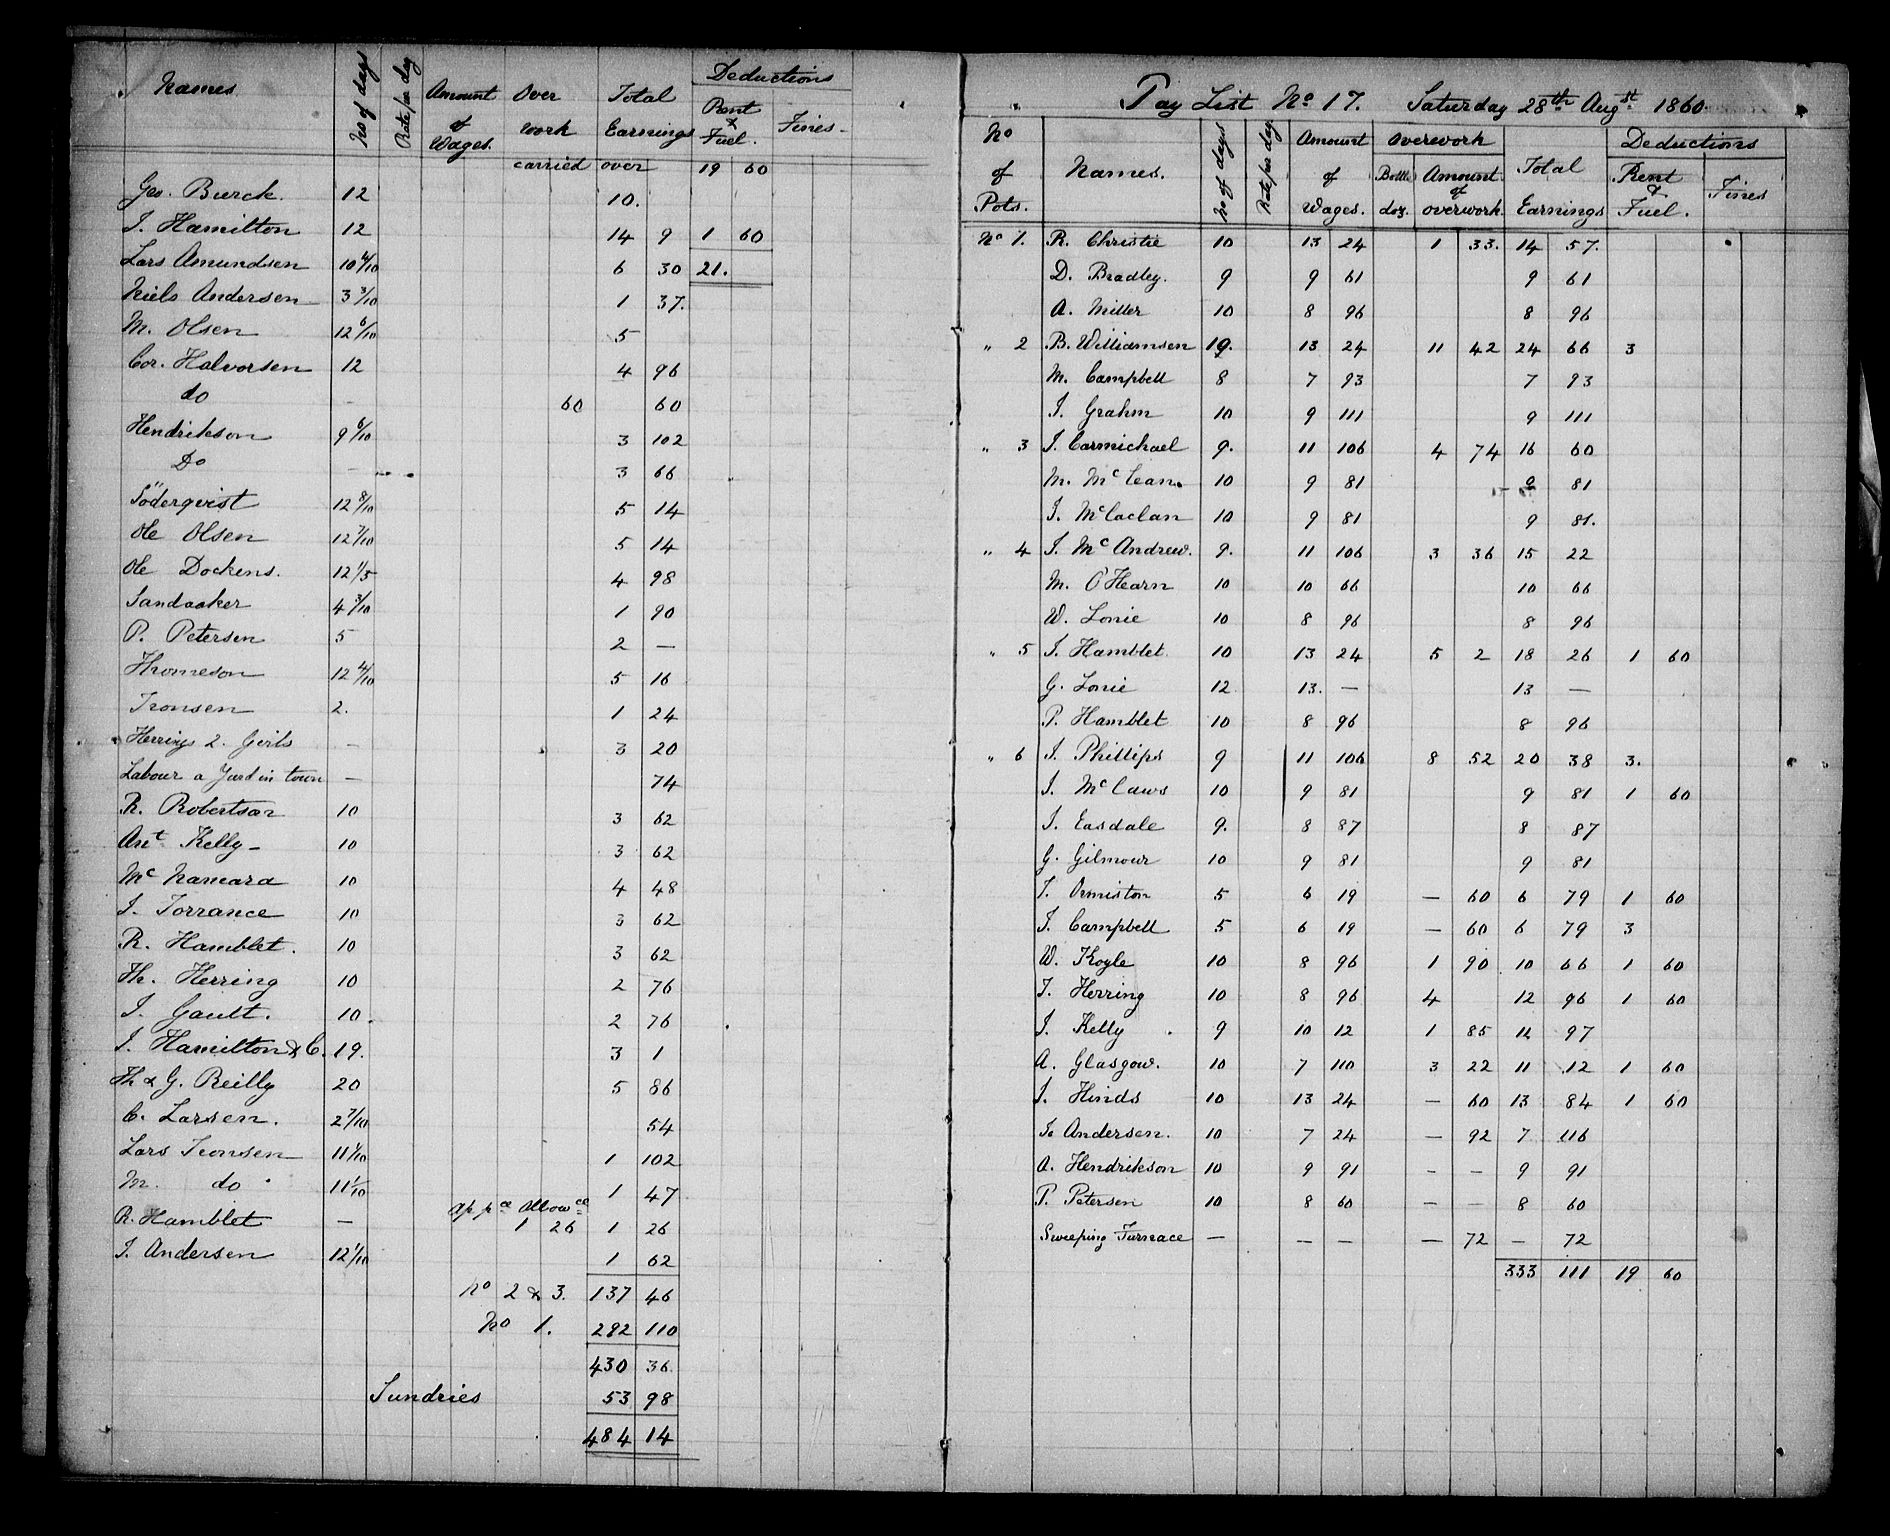 Names No of days Rate per day Amount of Wages. Over work Total Earnings Deductions Rent & Fuel. Fines
carried over 19 60
Geo. Burck. 12 10.
J. Hamilton 12 14 9 1 60
Lars Amundsen 10 4/10 6 30 21.
Niels Andersen 3 3/10 1 37.
M. Olsen 12 6/10 5
Cor. Halvorsen 12 4 96
do 60 60
Hendrikson 9 6/10 3 102
Do 3 66
Söderqvist 12 8/10 5 14
Ole Olsen 12 7/10 5 14
Ole Dockens. 12 1/5 4 98
Sandaaker 4 3/10 1 90
P. Petersen 5 2 —
Thomeson 12 4/10 5 16
Tronsen 2. 1 24
Herrings 2. Girls — 3 20
Labour a Yard in town — 74
R. Robertson 10 3 62
Ant Kelly 10 3 62
Mc Namara 10 4 48
J. Torrance 10 3 62
R. Hamblet. 10 3 62
Th. Herring 10 2 76
J. Gault. 10. 2 76
J. Hamilton & C. 19. 3 1
Th & G. Reilly 20 5 86
C. Larsen. 2 7/10 54
Lars Tronsen 11 1/10 1 102
M. do 11 1/10 1 47
ap pce allowce
R. Hamblet — 1 26 1 26
J. Andersen 12 1/10 1 62
No 2 & 3. 137 46
No 1. 292 110
430 36.
Sundries 53 98
484 14
Pay List No 17. Saturday 28th Augst 1860.
No of Pots. Names. No of days Rate per day Amount of Wages. Overwork Bottle doz. Amount of overwork. Total Earnings Deductions Rent & Fuel. Fines
No 1. R. Christie 10 13 24 1 33. 14 57.
D. Bradley. 9 9 61 9 61
A. Miller 10 8 96 8 96
" 2 B. Williamsen 10. 13 24 11 42 24 66 3
M. Campbell 8 7 93 7 93
J. Grahm 10 9 111 9 111
" 3 J. Carmichael 9. 11 106 4 74 16 60
M. McLean. 10 9 81 9 81
J. McLaclan 10 9 81 9 81.
" 4 J. McAndrew. 9. 11 106 3 36 15 22
M. O'Hearn 10 10 66 10 66
W. Lonie 10 8 96 8 96
" 5 J. Hamblet. 10 13 24 5 2 18 26 1 60
G. Lonie 12 13. — 13 —
P. Hamblet 10 8 96 8 96
" 6 J. Phillips 9 11 106 8 52 20 38 3.
J. McLaws 10 9 81 9 81 1 60
J. Easdale 9. 8 87 8 87
G. Gilmour 10 9 81 9 81
T. Ormiston 5 6 19 — 60 6 79 1 60
J. Campbell 5 6 19 — 60 6 79 3
W. Koyle 10 8 96 1 90 10 66 1 60
T. Herring 10 8 96 4 12 96 1 60
J. Kelly 9 10 12 1 85 11 97
A. Glasgow. 10 7 110 3 22 11 12 1 60
J. Hinds 10 13 24 — 60 13 84 1 60
Andersen. 10 7 24 — 92 7 116
A. Hendrikson 10 9 91 — — 9 91
P. Petersen 10 8 60 — — 8 60
Sweeping Furnace — — — — 72 — 72
333 111 19 60